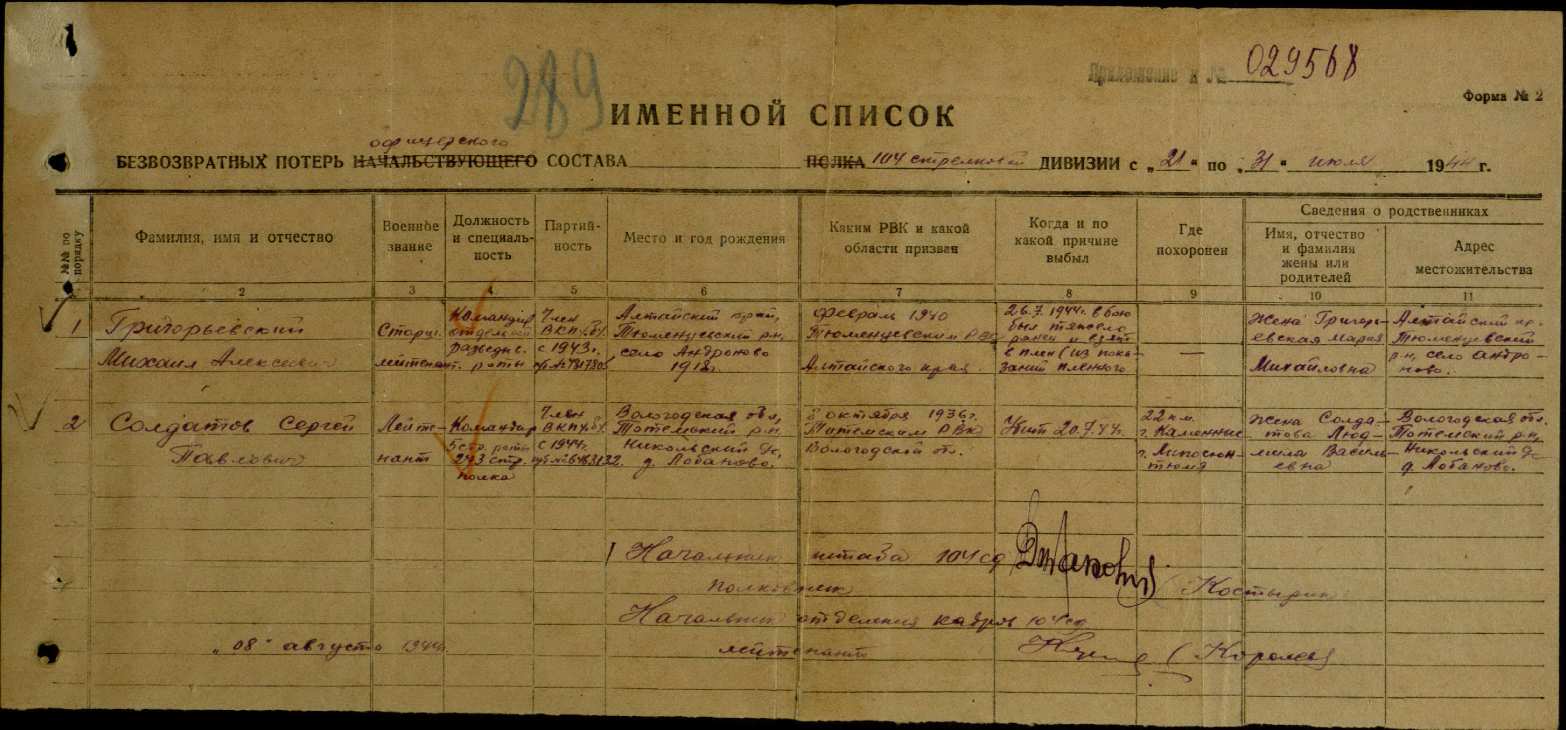 Приложение к № 029568
289
Форма № 2
ИМЕННОЙ СПИСОК
офицерского
БЕЗВОЗВРАТНЫХ ПОТЕРЬ НАЧАЛЬСТВУЮЩЕГО СОСТАВА ПОЛКА 104 стрелковой ДИВИЗИИ с „21“ по „31“ июля 1944 г.
№№ по порядку
Фамилия, имя и отчество
Военное звание
Должность и специальность
Партийность
Место и год рождения
Каким РВК и какой области призван
Когда и по какой причине выбыл
Где похоронен
Сведения о родственниках
Имя, отчество и фамилия жены или родителей
Адрес местожительства
2 3 4 5 6 7 8 9 10 11
1
Григорьевский
Михаил Алексеевич
Старш.
лейтенант
Командир
отдельной
разведыв.
роты
Член
ВКП(б)
с 1943 г.
Алтайский край,
Тюменцевский р-н,
село Андроново
1918г.
Февраль 1940
Тюменцевским РВК
Алтайского края
26.7.1944г. в бою
был тяжело
ранен и взят
в плен (из пока-
заний пленного
—
Жена Григорь-
евская Мария
Михайловна
Алтайский кр.
Тюменцевский
р-н, село Андро-
ново.
2
Солдатов Сергей
Павлович
Лейте-
нант
Командир
5 стр. роты
243 стр.
полка
Член
ВКП(б)
с 1944г.
Вологодская обл,
Тотемский р-н,
Никольский с/с,
д. Лобаново.
8 октября 1936г.
Тотемским РВК
Вологодской об.
Убит 20.7.44г.
22 км.
Жена Солда-
това Люд-
мила Василь-
евна
Вологодская обл.
Тотемский р-н,
Никольский с/с
д. Лобаново.
Начальник штаба 104 сд
полковник
(Костырин)
Начальник отделения кадров 104 сд
„08“ августа 1944г.
лейтенант
(Королев)